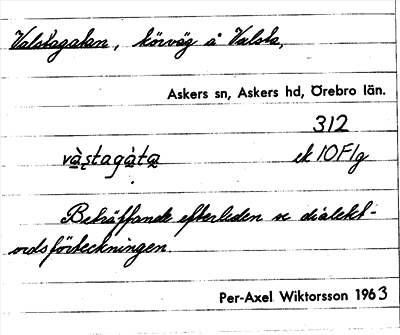 Valstagatan, körväg å Valsta,
Askers sn, Askers hd, Örebro län.
312
vå̱stagàta ek 10F1g
Beträffande efterleden se dialekt-
ordsförteckningen.
Per-Axel Wiktorsson 1963